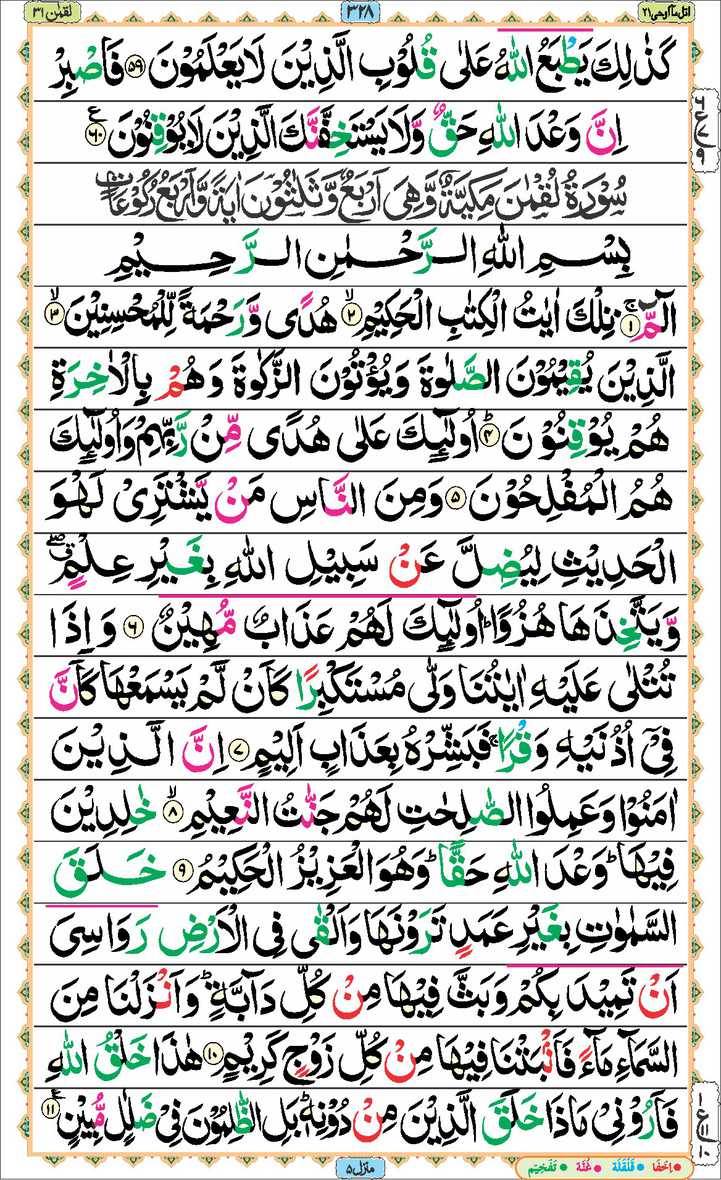 اتل مآ اوحی ٢١
٣٢٨
لقمٰن ٣١
كَذٰلِكَ يَطْبَعُ اللّٰهُ عَلٰى قُلُوْبِ الَّذِيْنَ لَا يَعْلَمُوْنَ ﴿٥٩﴾ فَاصْبِرْ
اِنَّ وَعْدَ اللّٰهِ حَقٌّ وَّلَا يَسْتَخِفَّنَّكَ الَّذِيْنَ لَا يُوْقِنُوْنَ ﴿٦٠﴾ ع
سُوْرَةُ لُقْمٰنَ مَكِيَّةٌ وَّهِىَ اَرْبَعٌ وَّثَلٰثُوْنَ اٰيَةً وَّاَرْبَعُ رُكُوْعَاتٍ
بِسْمِ اللّٰهِ الرَّحْمٰنِ الرَّحِيْمِ
الٓمّٓ ﴿١﴾ۚ تِلْكَ اٰيٰتُ الْكِتٰبِ الْحَكِيْمِ ﴿٢﴾ۙ هُدًى وَّرَحْمَةً لِّلْمُحْسِنِيْنَ ﴿٣﴾ۙ
الَّذِيْنَ يُقِيْمُوْنَ الصَّلٰوةَ وَيُؤْتُوْنَ الزَّكٰوةَ وَهُمْ بِالْاٰخِرَةِ
هُمْ يُوْقِنُوْنَ ﴿٤﴾ؕ اُولٰٓئِكَ عَلٰى هُدًى مِّنْ رَّبِّهِمْ وَاُولٰٓئِكَ
هُمُ الْمُفْلِحُوْنَ ﴿٥﴾ وَمِنَ النَّاسِ مَنْ يَّشْتَرِىْ لَهْوَ
الْحَدِيْثِ لِيُضِلَّ عَنْ سَبِيْلِ اللّٰهِ بِغَيْرِ عِلْمٍ ۖق
وَّيَتَّخِذَهَا هُزُوًا ؕ اُولٰٓئِكَ لَهُمْ عَذَابٌ مُّهِيْنٌ ﴿٦﴾ وَاِذَا
تُتْلٰى عَلَيْهِ اٰيٰتُنَا وَلّٰى مُسْتَكْبِرًا كَاَنْ لَّمْ يَسْمَعْهَا كَاَنَّ
فِىْٓ اُذُنَيْهِ وَقْرًا ۚ فَبَشِّرْهُ بِعَذَابٍ اَلِيْمٍ ﴿٧﴾ اِنَّ الَّذِيْنَ
اٰمَنُوْا وَعَمِلُوا الصّٰلِحٰتِ لَهُمْ جَنّٰتُ النَّعِيْمِ ﴿٨﴾ۙ خٰلِدِيْنَ
فِيْهَا ؕ وَعْدَ اللّٰهِ حَقًّا ؕ وَهُوَ الْعَزِيْزُ الْحَكِيْمُ ﴿٩﴾ خَلَقَ
السَّمٰوٰتِ بِغَيْرِ عَمَدٍ تَرَوْنَهَا وَاَلْقٰى فِى الْاَرْضِ رَوَاسِىَ
اَنْ تَمِيْدَ بِكُمْ وَبَثَّ فِيْهَا مِنْ كُلِّ دَآبَّةٍ ؕ وَاَنْزَلْنَا مِنَ
السَّمَآءِ مَآءً فَاَنْۢبَتْنَا فِيْهَا مِنْ كُلِّ زَوْجٍ كَرِيْمٍ ﴿١٠﴾ هٰذَا خَلْقُ اللّٰهِ
فَاَرُوْنِىْ مَاذَا خَلَقَ الَّذِيْنَ مِنْ دُوْنِهٖ ؕ بَلِ الظّٰلِمُوْنَ فِىْ ضَلٰلٍ مُّبِيْنٍ ﴿١١﴾ ع
منزل ٥
اِخْفَا • قَلْقَلَة • غُنَّة • تَفْخِيْم